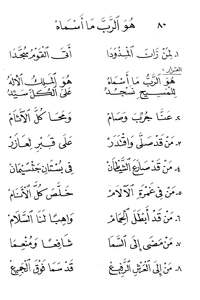 ٨٠ هُوَ الرَّبُّ مَا أَسْمَاهُ
١. لِمَنْ زَانَ المِذْوَدَا أَتَى القَوْمُ سُجَّدَا
القرار:
هُوَ الرَّبُّ مَا أَسْمَاهُ هُوَ المَلِكُ الإِلَهُ
لِلْمَسِيحِ نَسْجُدُ عَلَى الكُلِّ سَيِّدُ
٢. عَنَّا جُرِّبَ وَصَامْ وَمَحَا كُلَّ الآثَامْ
٣. مَنْ قَدْ صَلَّى وَاقْتَدَرْ عَلَى قَبْرِ لِعَازَرْ
٤. مَنْ قَدْ صَارَعَ الشَّيْطَانْ فِي بُسْتَانِ جَثْسَيْمَانْ
٥. مَنْ فِي غَمْرَةِ الآلَامْ خَلَّصَ كُلَّ الأَنَامْ
٦. مَنْ قَدْ أَبْطَلَ الحِمَامْ وَاهِبًا لَنَا السَّلَامْ
٧. مَنْ مَضَى إِلَى السَّمَا شَافِعًا وَمُنْعِمَا
٨. مَنْ إِلَى العَرْشِ الرَّفِيعْ قَدْ سَمَا فَوْقَ الجَمِيعْ